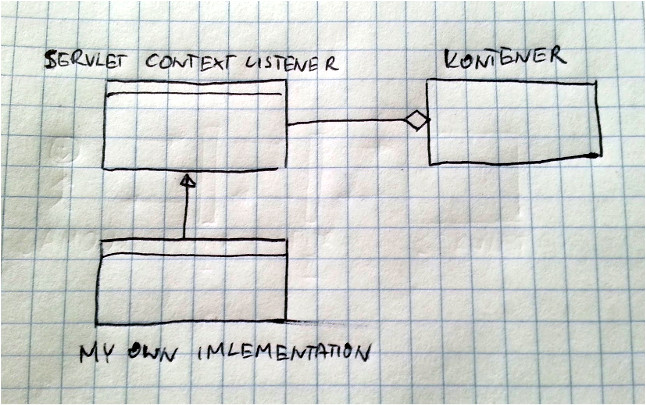 SERVLET CONTEXT LISTENER
KONTENER
MY OWN IMLEMENTATION